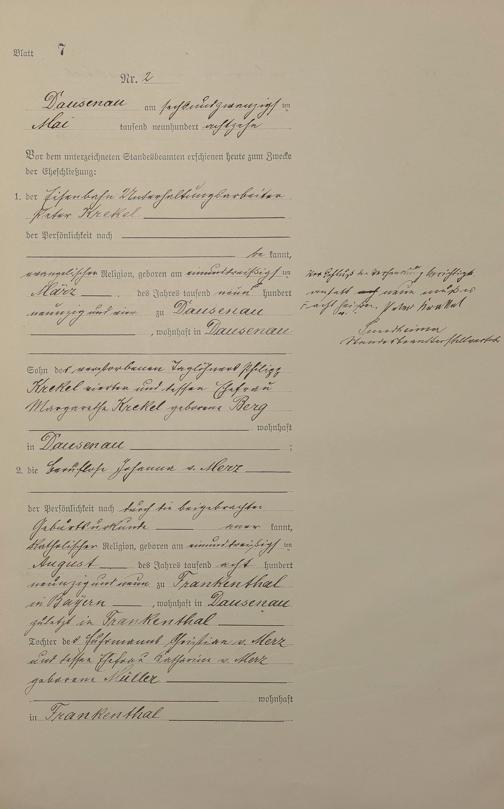 Blatt 7
Nr. 2
Dausenau am sechsundzwanzigsten
Mai tausend neunhundert achtzehn
Vor dem unterzeichneten Standesbeamten erschienen heute zum Zwecke
der Eheschließung:
1. der Eisenbahn Unterhaltungsarbeiter
Peter Krekel
der Persönlichkeit nach
be kannt,
evangelischer Religion, geboren am einunddreißigsten
März des Jahres tausend neun hundert
neunzig und vier zu Dausenau
, wohnhaft in Dausenau
Sohn des verstorbenen Taglöhners Philipp
Krekel und dessen Ehefrau
Margarethe Krekel geborene Berg
wohnhaft
in Dausenau ;
2. die berufslose Johanna v. Merz
der Persönlichkeit nach durch die beigebrachte
Geburtsurkunde aner kannt,
katholischer Religion, geboren am einunddreißigsten
August des Jahres tausend acht hundert
neunzig und neun zu Frankenthal
in Bayern , wohnhaft in Dausenau
zuletzt in Frankenthal
Tochter des Fuhrmanns Christian v. Merz
und dessen Ehefrau Katharina v. Merz
geborene Müller
wohnhaft
in Frankenthal
Vor Schluß der Verhandlung berichtigt
anstatt neun muß es
acht heißen. Peter Krekel
Standesbeamter Stellvertreter